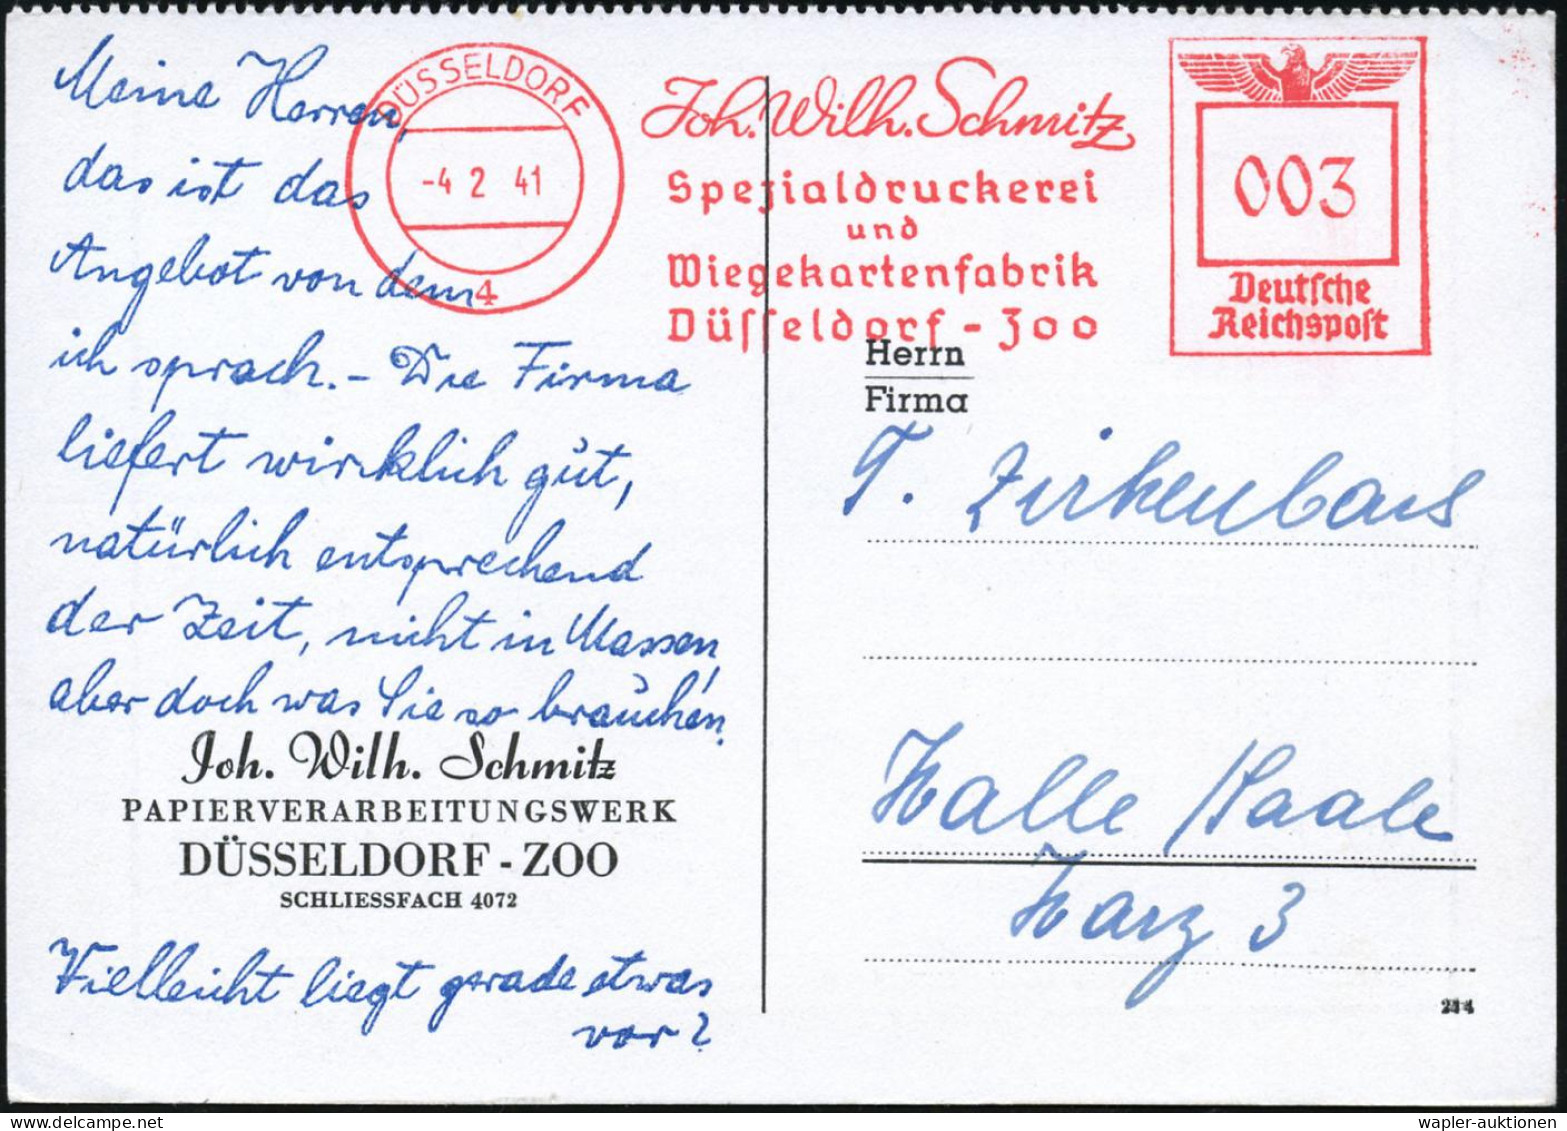 Meine Herren,
das ist das
Angebot von dem
ich sprach. – Die Firma
liefert wirklich gut,
natürlich entsprechend
der Zeit, nicht in Massen,
aber doch was Sie so brauchen.
Joh. Wilh. Schmitz
PAPIERVERARBEITUNGSWERK
DÜSSELDORF - ZOO
SCHLIESSFACH 4072
Vielleicht liegt gerade etwas
vor?
DÜSSELDORF
-4 2 41
4
Joh. Wilh. Schmitz
Spezialdruckerei
und
Wiegekartenfabrik
Düsseldorf - Zoo
003
Deutsche
Reichspost
Herrn
Firma
T. Zirkenbach
Halle /Saale
Harz 3
wapler-auktionen